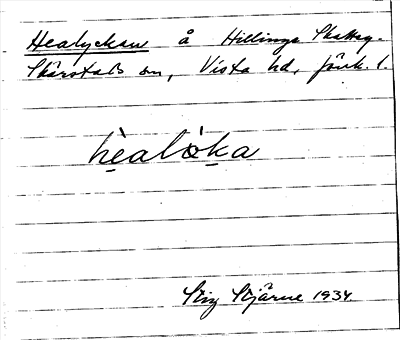 Healyckan å Hillinge Skatteg.
Skärstads sn, Vista hd, Jönk. l.
healöka
Stig Stjärne 1934.